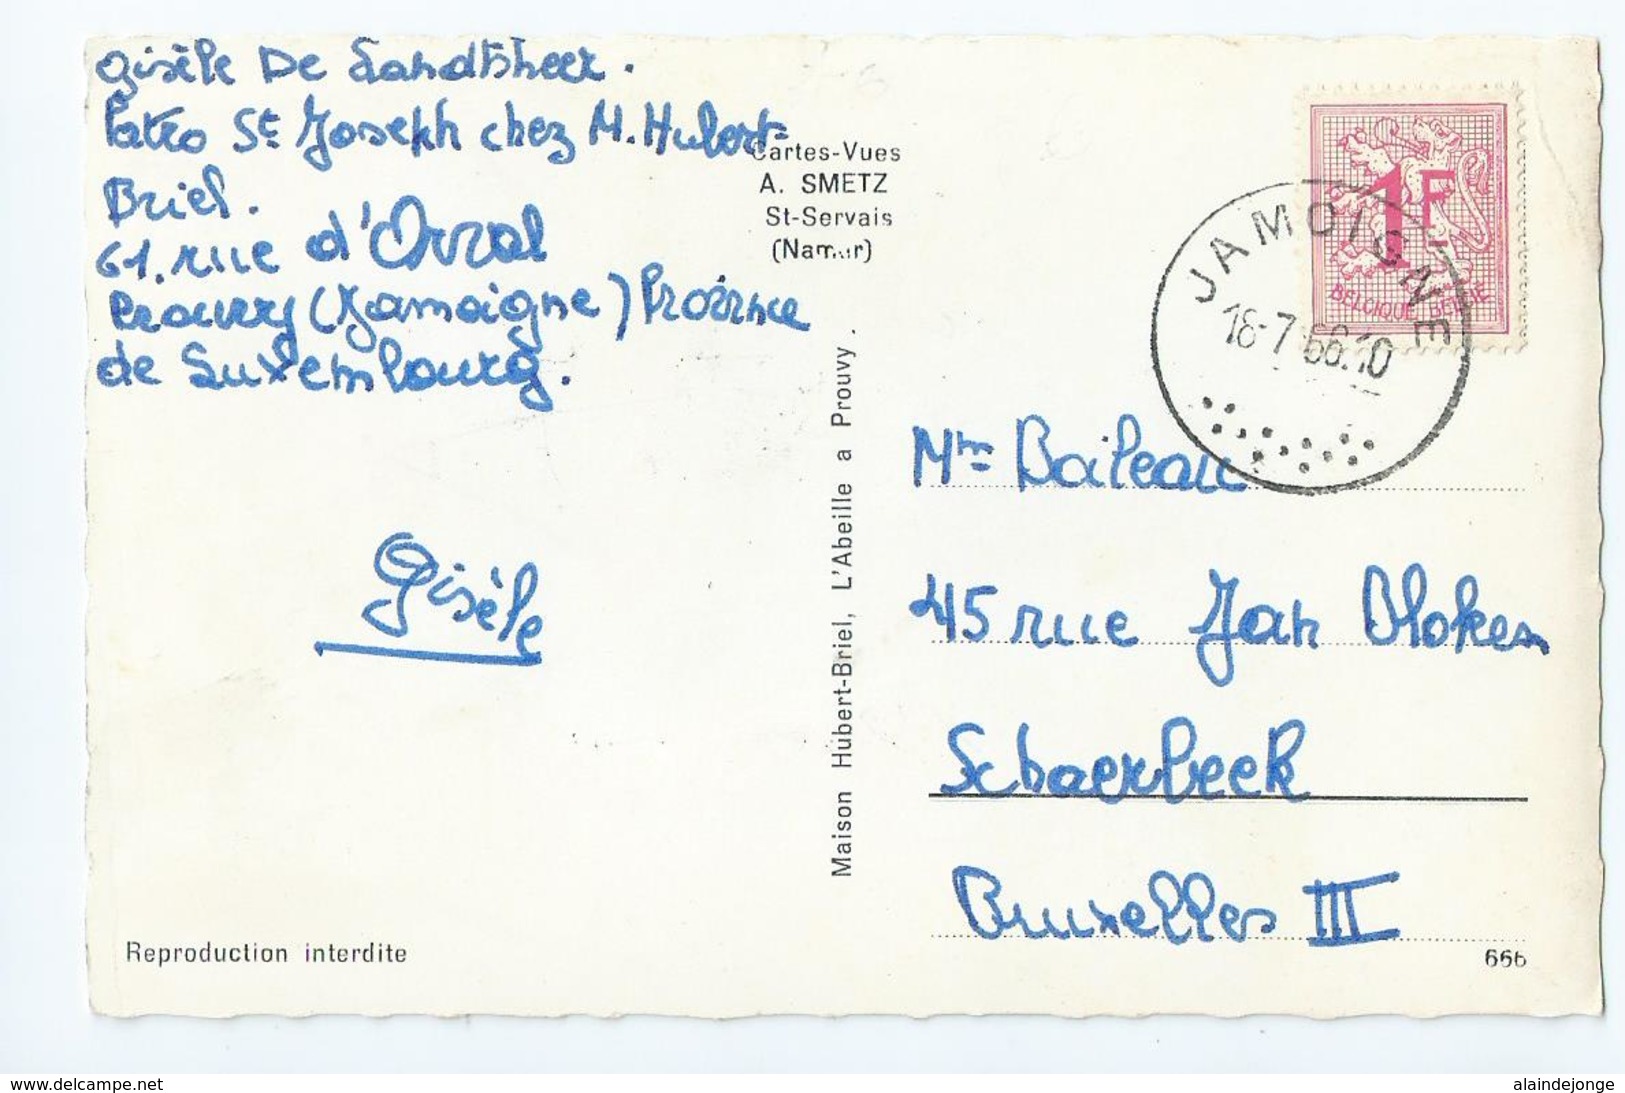 Gisèle De Landtsheer.
Patro St Joseph chez M. Hubert-
Briel.
61. rue d'Orval
Prouvy (Jamoigne) Province
de Luxembourg.
Gisèle
Reproduction interdite
Cartes-Vues
A. SMETZ
St-Servais
(Namur)
Maison Hubert-Briel, L'Abeille a Prouvy.
1F
BELGIQUE BELGIE
JAMOIGNE
18-7 66.10
Mme Boileau
45 rue Jan Blokes
Schaerbeek
Bruxelles III
666
www.delcampe.net
alaindejonge